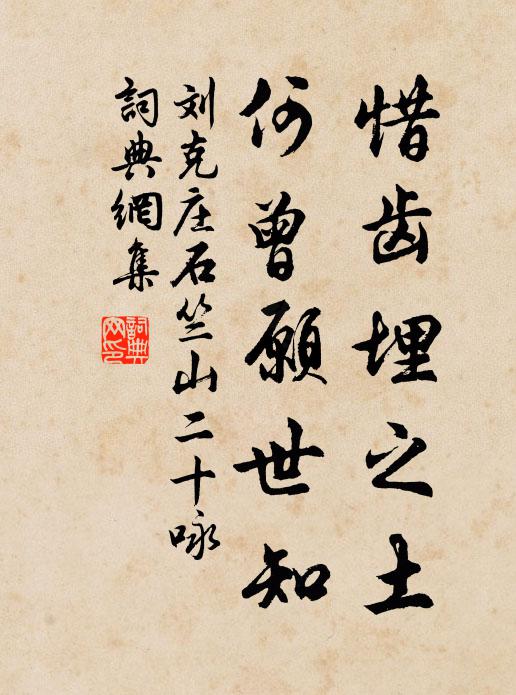 惜齿埋之土
何曾願世知
刘克庄石竺山二十咏
詞典網集
詞典網印